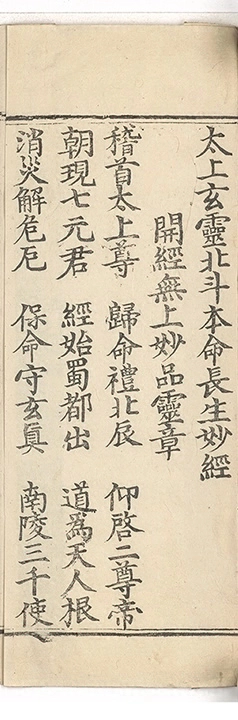 太上玄靈北斗本命長生妙經
開經無上妙品靈章
稽首太上尊 歸命禮北辰 仰啓二尊帝
朝現七元君 經始蜀都出 道爲天人根
消災解危厄 保命守玄眞 南陵三千使